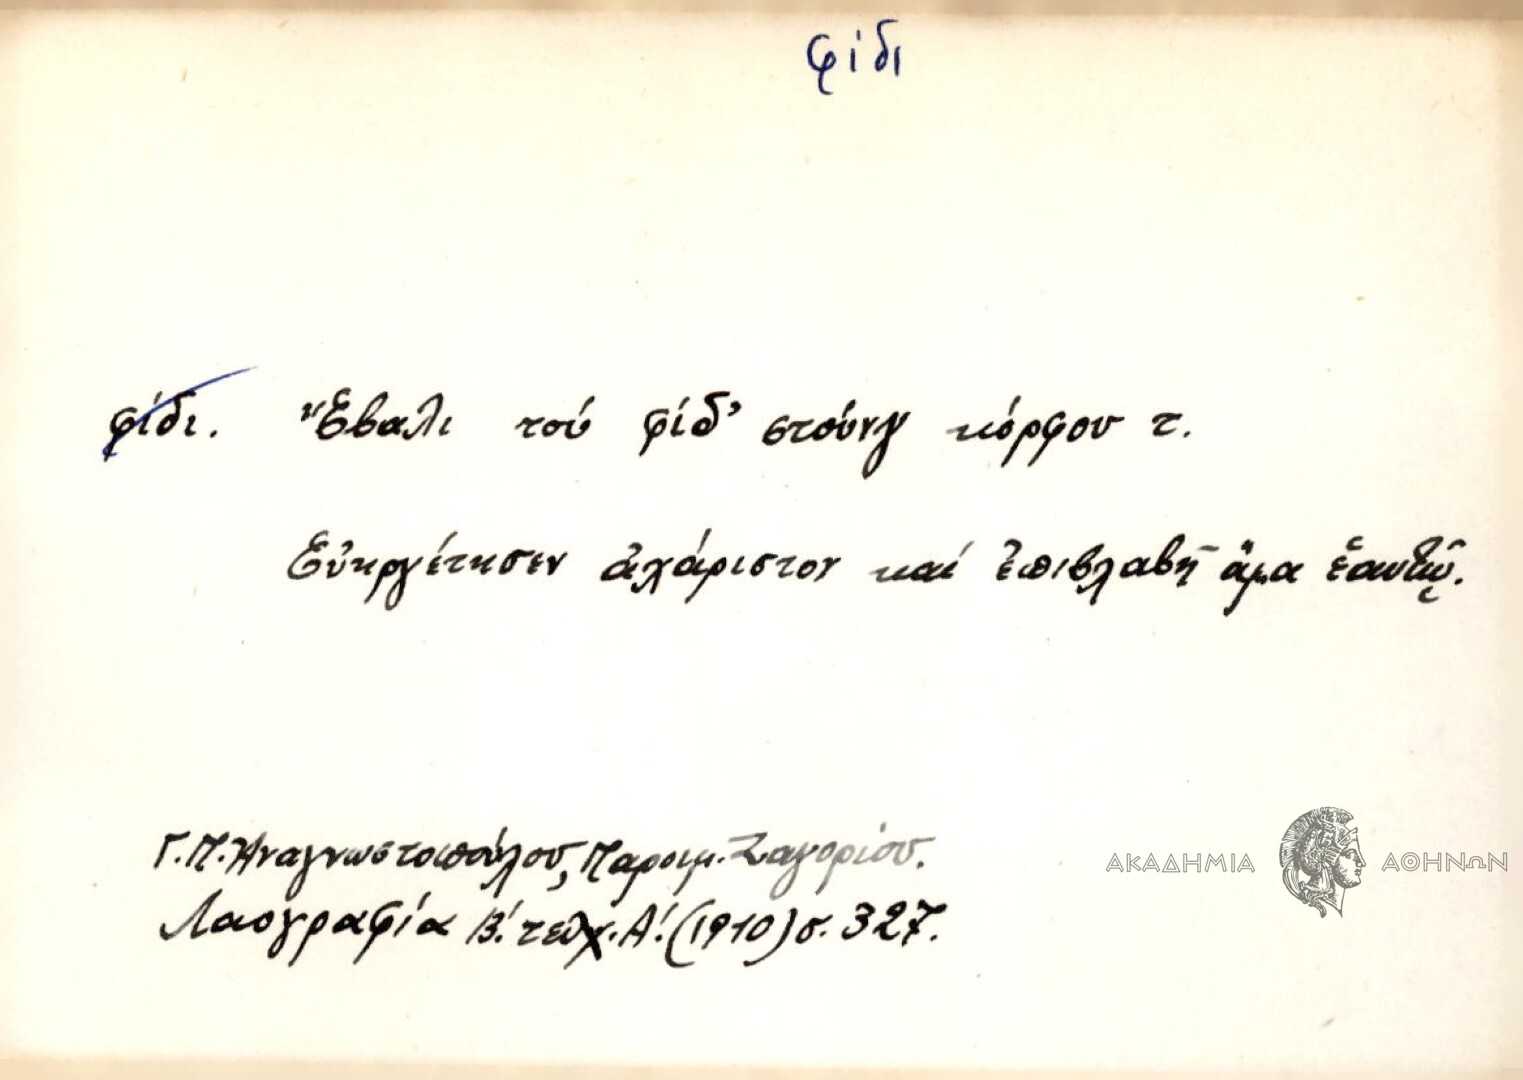 φίδι
φίδι. Ἔβαλι τού φίδ' στούνγ κόρφου τ.
Εὐηργέτησεν ἀχάριστον καί ἐπιβλαβῆ ἅμα ἑαυτῷ.
Γ. Π. Ἀναγνωστοπούλου, Παροιμ. Ζαγορίου.
Λαογραφία Β΄. τευχ. Α΄. (1910) σ. 327.
ΑΚΑΔΗΜΙΑ ΑΘΗΝΩΝ